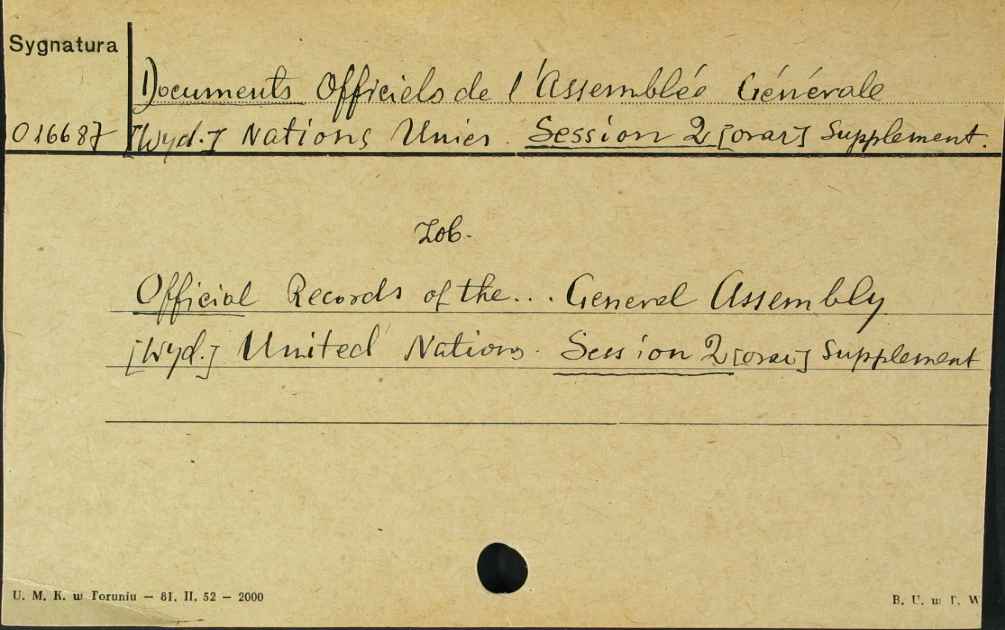 Sygnatura
Documents Officiels de l'Assemblée Générale
016687 [Wyd.] Nations Unies. Session 2 [oraz] Supplement.
Zob.
Official Records of the... General Assembly
[Wyd.] United Nations. Session 2 [oraz] Supplement
U. M. K. w Toruniu — 81. II. 52 — 2000
B. U. w T. W